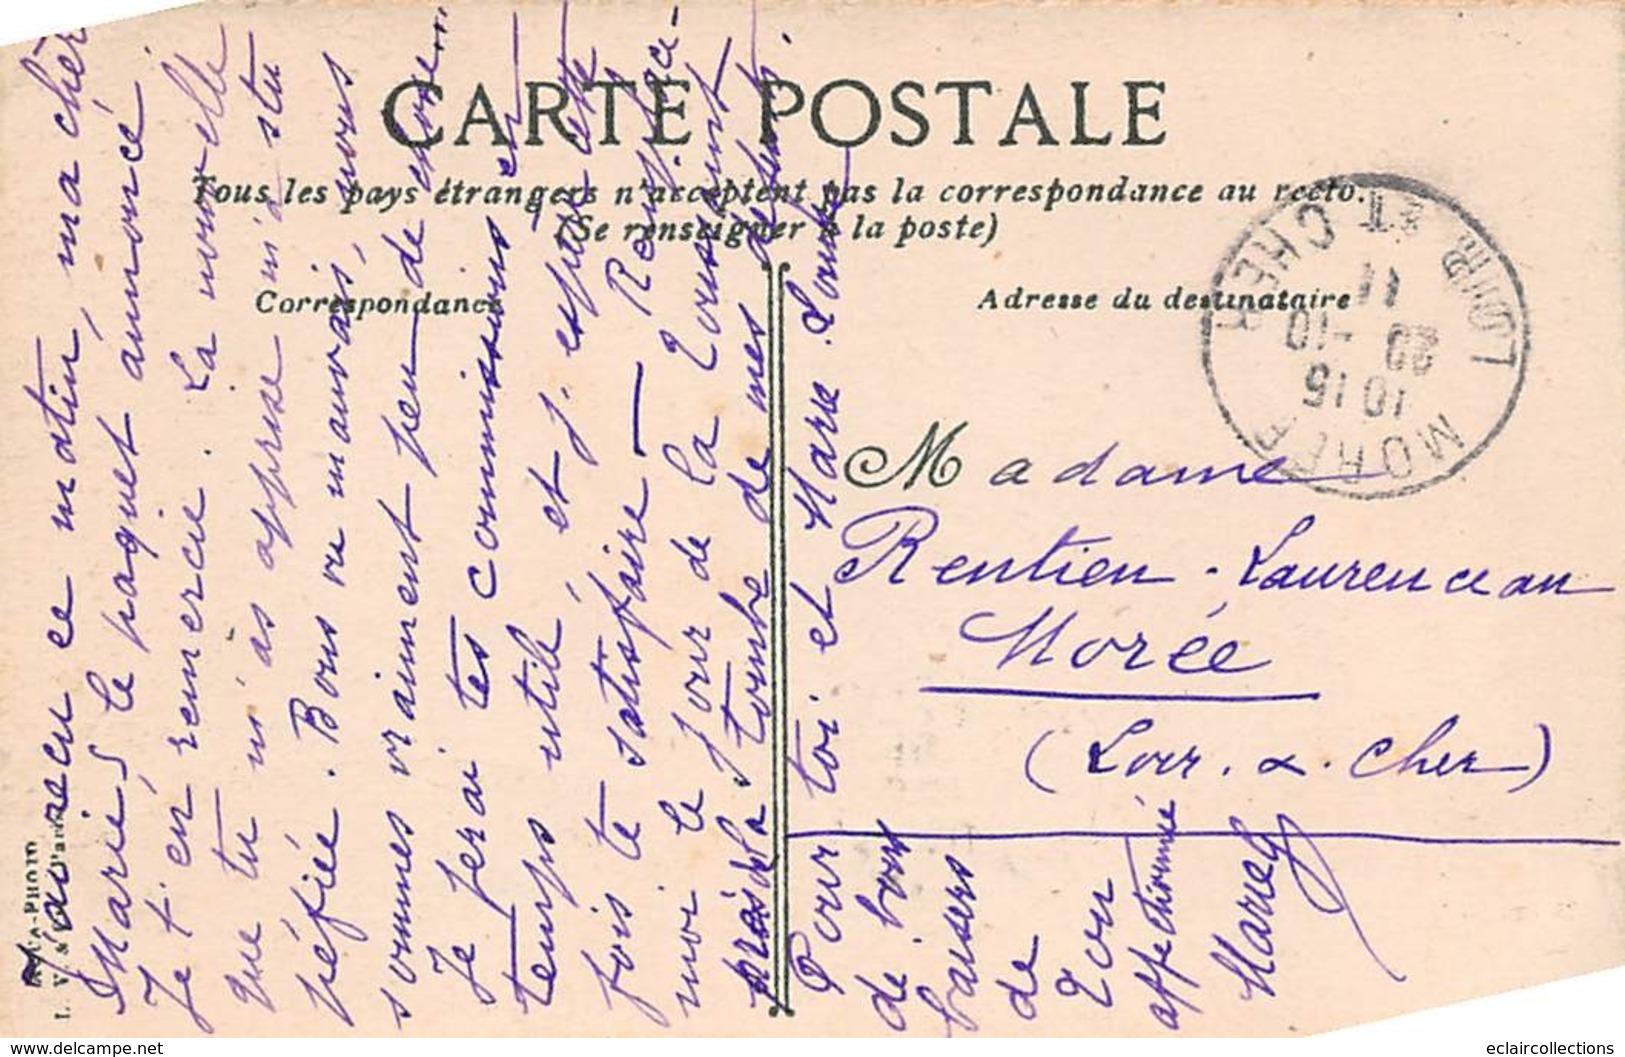 CARTE POSTALE
Tous les pays étrangers n'acceptent pas la correspondance au recto.
(Se renseigner à la poste)
Correspondance
Adresse du destinataire
LOIR ET CHER
11
20 -10
10 15
MOREE
J'ai reçu ce matin, ma chèr
Marie, le paquet annoncé
Je t'en remercie. La nouvelle
que tu m'as apprise m'a stu
péfiée. Bons ou mauvais, nous
sommes vraiment peu de chose..
Je ferai tes commissions en
temps utile, et j'espère cette
fois te satisfaire — Remplace-
moi le jour de la Toussaint
près de la tombe de mes
Pour toi et Marie Louise
de bons
baisers
de
Ton
affectionnée
Marie
Madame
Rentien-Laurenceau
Morée
(Loir. &. Cher)
PHOTO
eclaircollections
www.delcampe.net